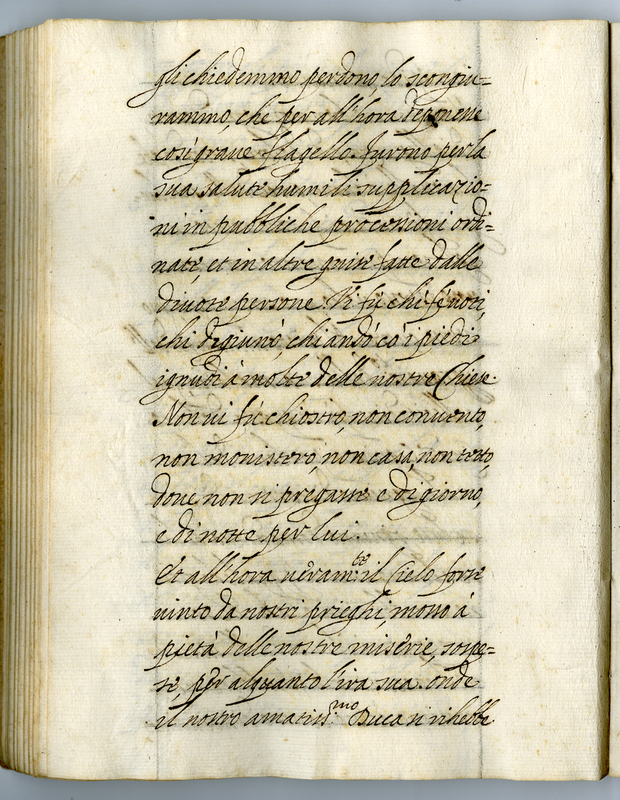 gli chiedemmo perdono, lo scongiu=
rammo, che per all'hora deponene
così graue flagello. furono per la
sua salute humili supplicazio=
ni in pubbliche processioni ordi=
nate, et in altre guise fatte dalle
diuote persone. Vi fù chi fè uoti,
chi digiunò, chi andò cò i piedi
ignudi à molte delle nostre Chiese.
Non ui fù chiostro, non conuento,
non monistero, non casa, non tetto,
doue non si pregasse e di giorno,
e di notte per lui.
Et all'hora ueram:te il Cielo forse
uinto da nostri prieghi, mosso à
pietà delle nostre miserie, sospe=
se, per alquanto l'ira sua. onde
il nostro amatiss:mo Duca si rihebbe